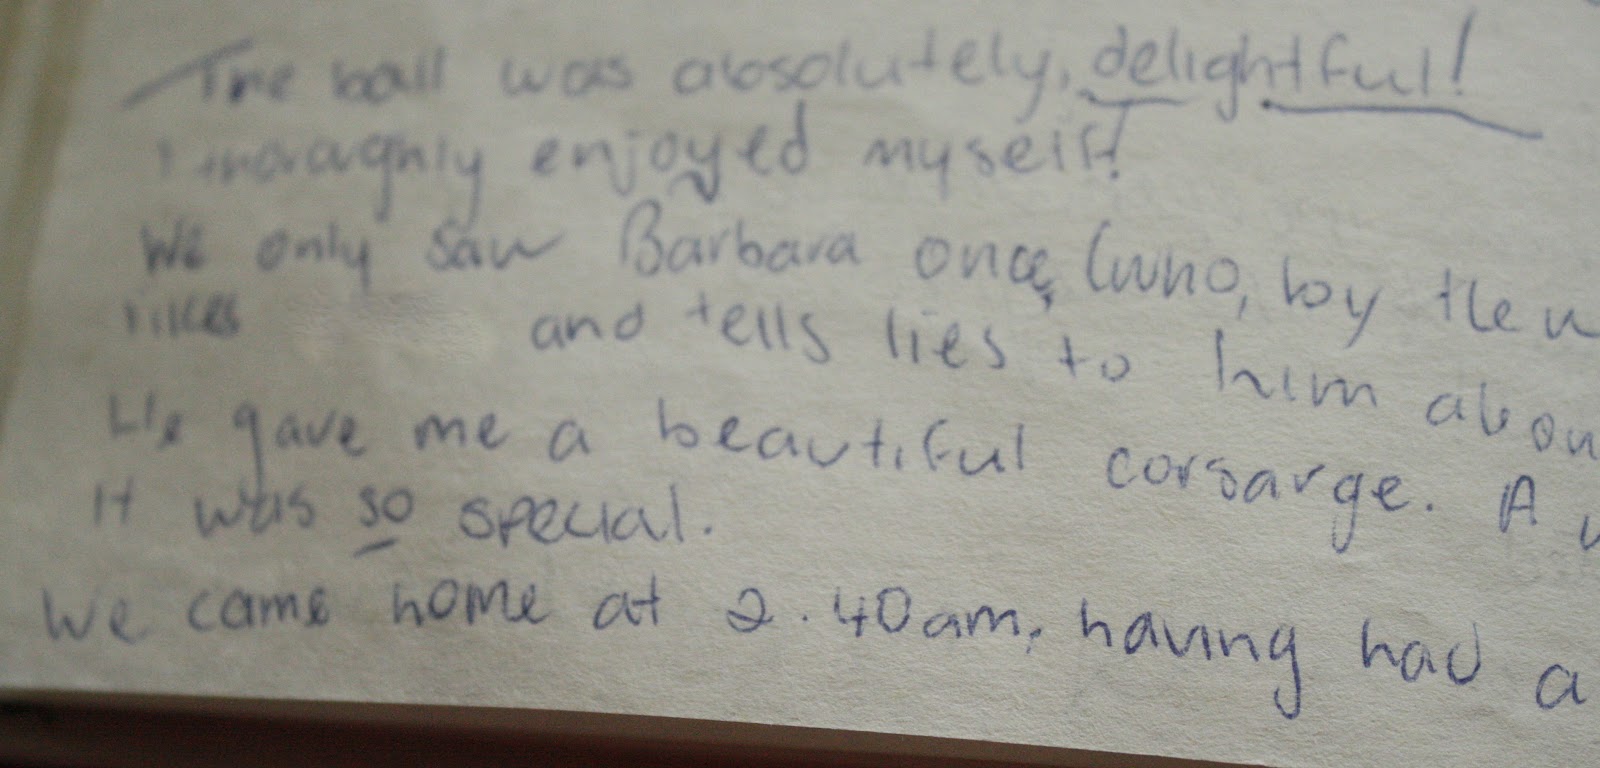 The ball was absolutely, delightful!
I thoroughly enjoyed myself!
We only saw Barbara once, (who, by the w
likes and tells lies to him abou
He gave me a beautiful corsarge. A
It was so special.
We came home at 2.40am, having had a